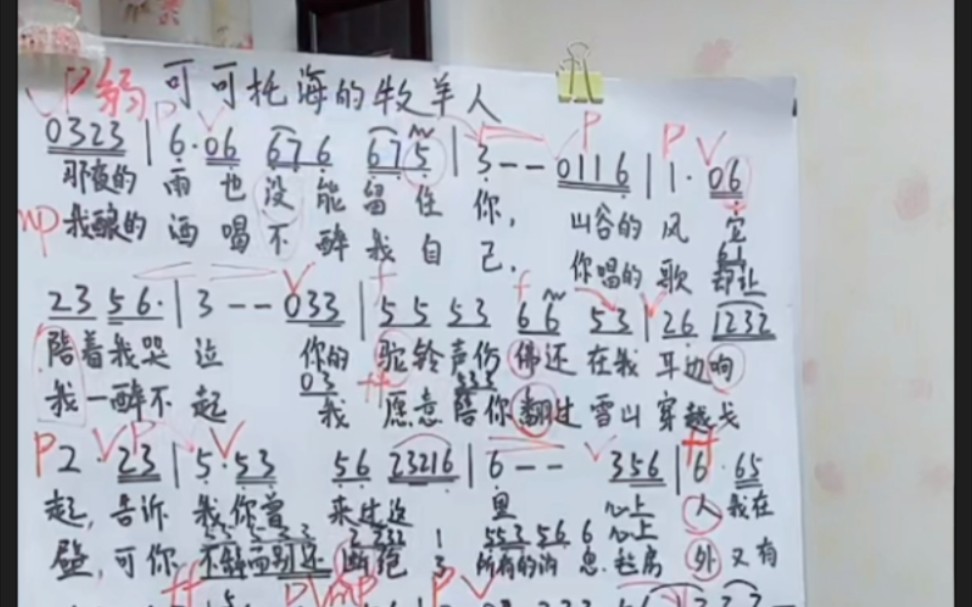 VP弱 可可托海的牧羊人
P V P P V
0323 | 6·06 676 675 | 3-- 0116 | 1·06
那夜的 雨也没能留住你, 山谷的风 它
mp 我酿的酒喝不醉我自己. 你唱的歌 却让
V f f
23 56· | 3-- 033 | 55 53 66 53 | 26 1232
陪着我哭泣 你的 驼铃声仿佛还在我耳边响
03 533
我一醉不起 我 愿意陪你翻过雪山穿越戈
P VP V V ff
2·23 | 5·53 56 23216 | 6-- 356 | 6·65
起, 告诉 我你曾 来过这 里 心上 人 我在
壁, 可你 不辞而别还 断绝了 所有的消息. 心上 外 又有
ff P V mp P V